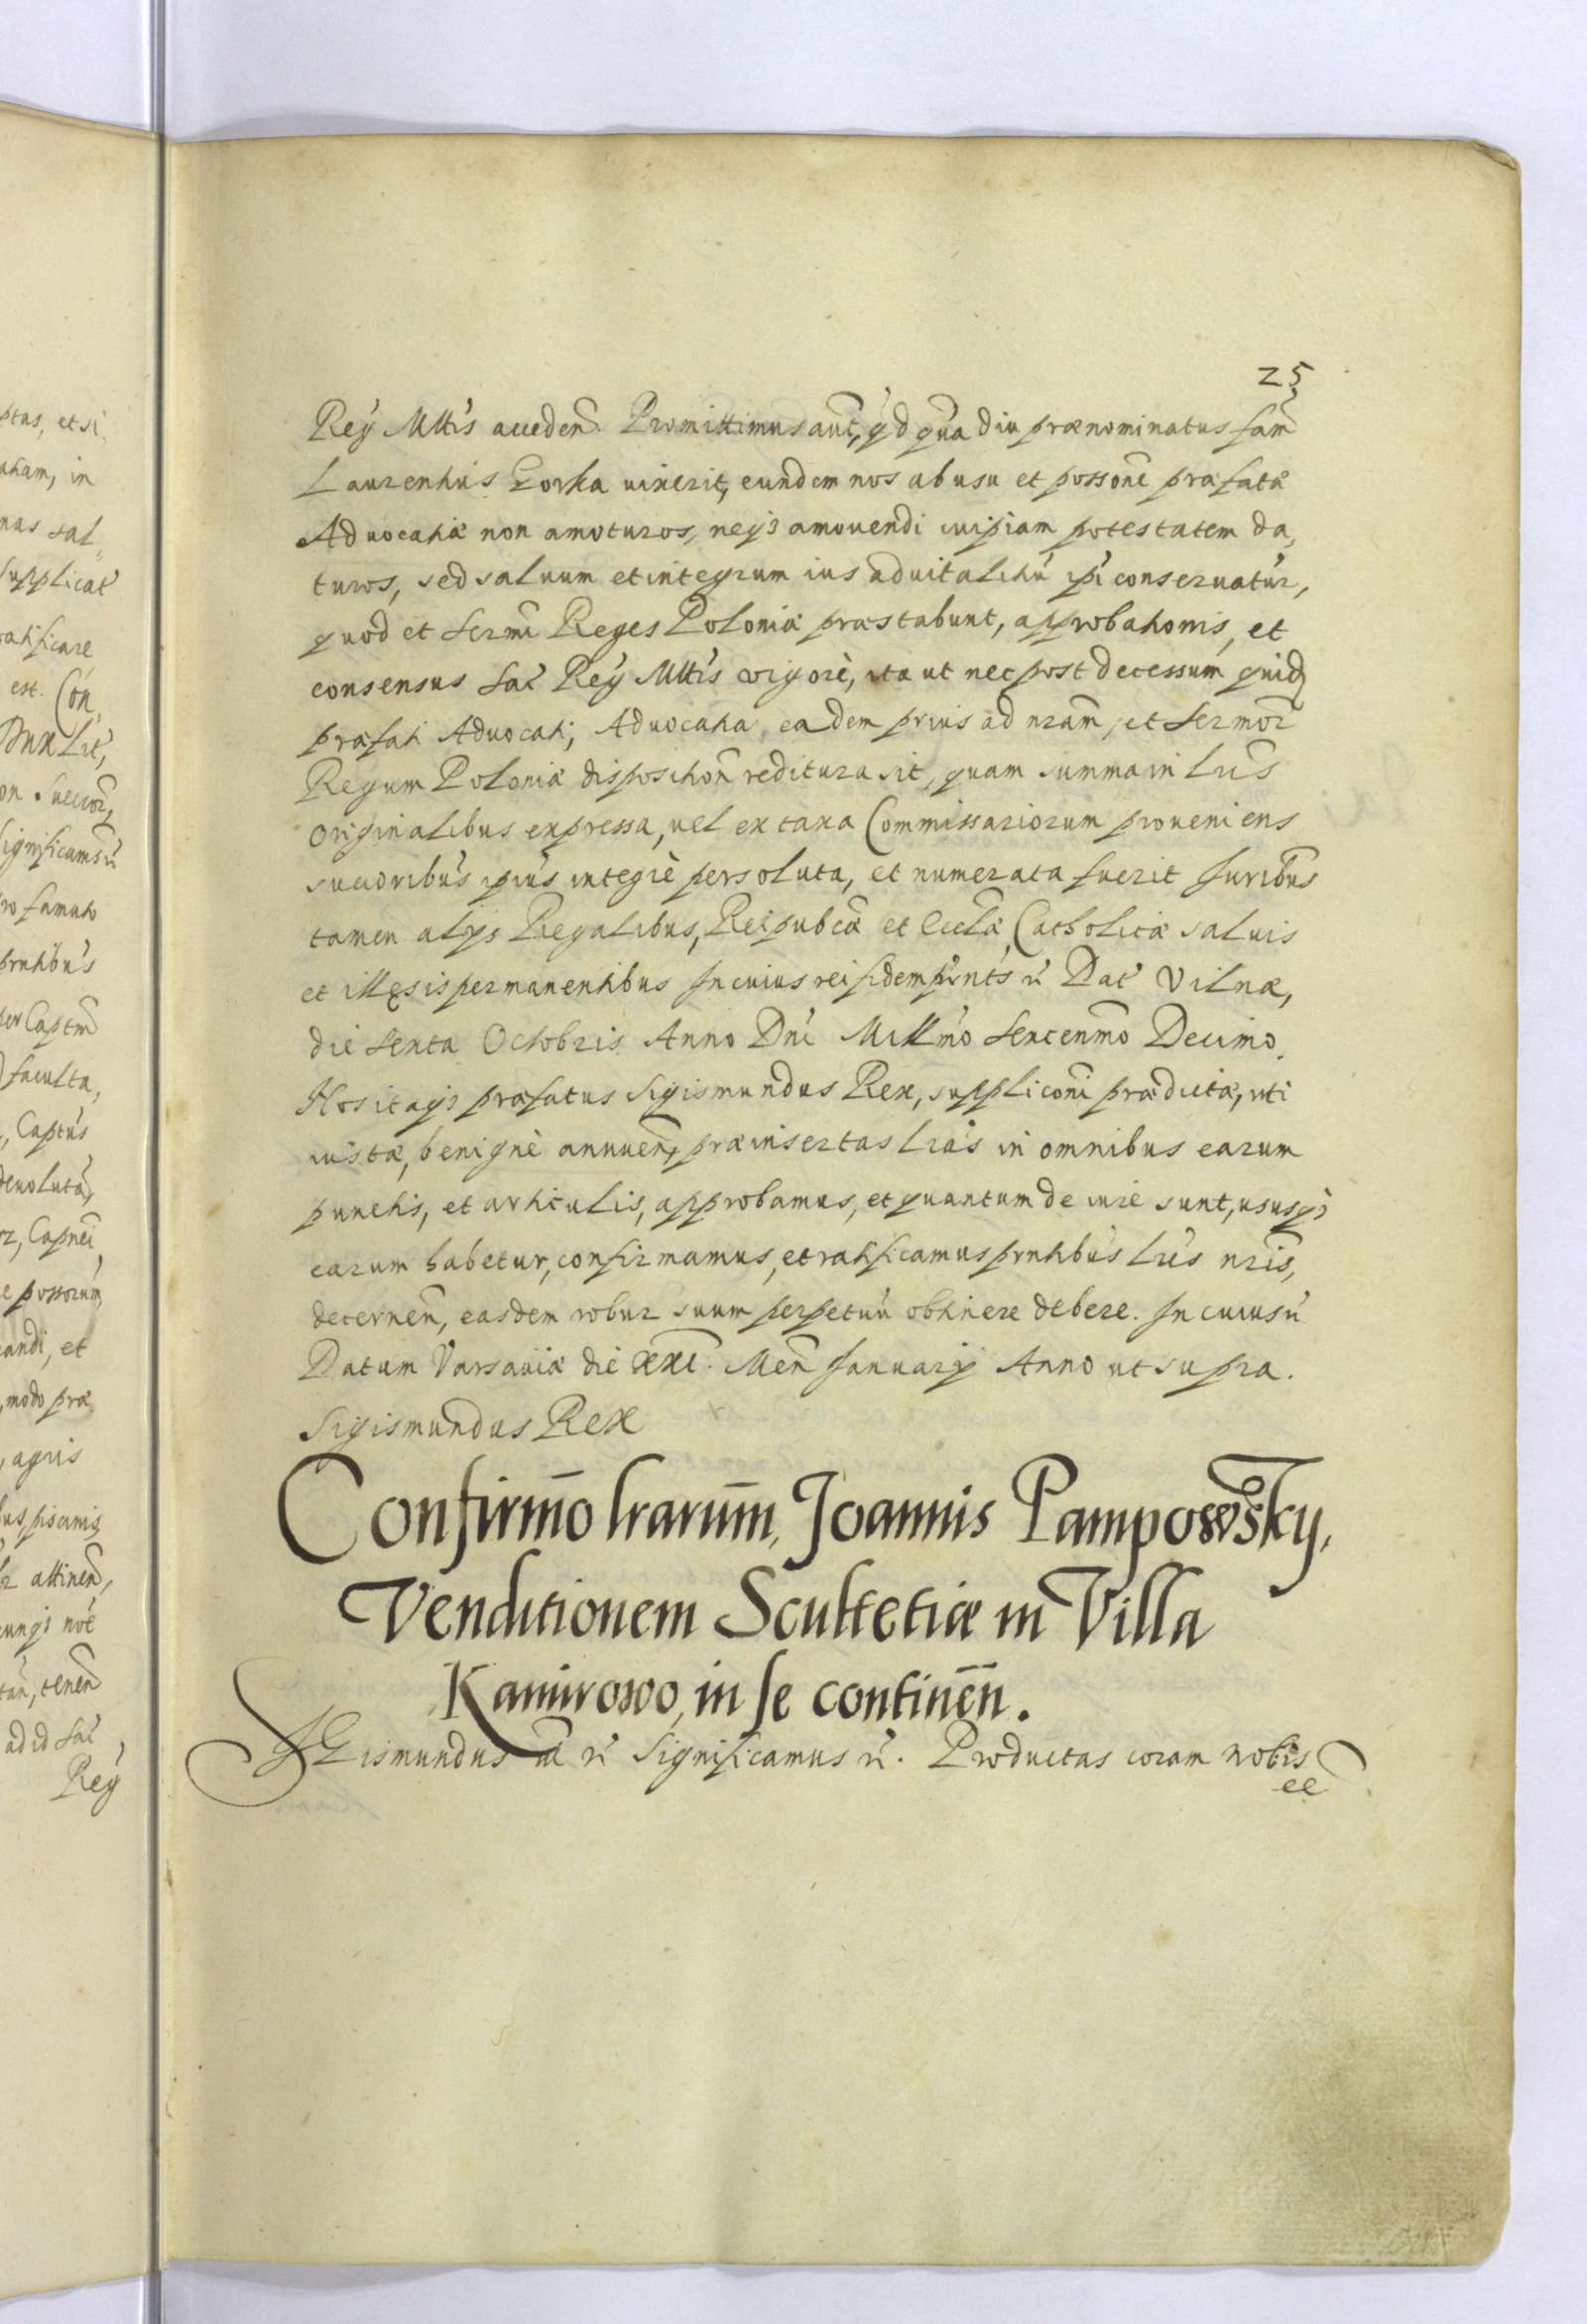 25
Reg Mttis acceden. Promittimus aut, qd qua diu prænominatus fam
Laurentius Gorka vixerit, eundem nos ab usu et possone præfatæ
Advocatiæ non amoturos, neq3 amovendi cuipiam potestatem da,
turos, sed salvum et integrum ius advitalitiu ipi conservatur,
quod et Sermi Reges Poloniæ præstabunt, approbationis, et
consensus Sac Reg Mttis vigore, ita ut nec post decessum quidē
præfati Advocati, Advocatia eadem prius ad nram, et Sermor
Regum Poloniæ disposition reditura sit, quam summa in Lris
Originalibus expressa, vel ex taxa Commissariorum proveniens
succoribus ipius integrè persoluta, et numerata fuerit Juribus
tamen alijs Regalibus, Reipubcæ et Ecclæ Catholicæ salvis
et illęsis permanentibus In cuius rei fidem prnts rc Dat Vilnæ,
die sexta Octobris Anno Dni Millmo Sexcenmo Decimo.
Nos itaq3 præfatus Sigismundus Rex, suppliconi prædictæ, uti
iustæ, benignè annuen, præinsertas Lras in omnibus earum
punctis, et articulis, approbamus, et quantum de iure sunt, ususq3
earum habetur, confirmamus, et ratificamus prntibus Lris nris,
decernen, easdem robur suum perpetuu obtinere debere. In cuius rc
Datum Varsaviæ die XXI. Men January Anno ut supra.
Sigismundus Rex
Confirmo lrarum, Joannis Pampowsky,
Venditionem Scultetiæ in Villa
Kamirowo, in se continen.
SIGismundus III rc Significamus rc. Productas coram nobis
ee
ptus, et si
atiam, in
nas sal,
Supplicat
ratificare
est. Con,
Dux Lit,
on Succor,
Significams rc
ro famato
prntibus
per Captm
facultа,
, Captus
devoluta,
or, Capnei
e possorum
andi, et
, modo præ,
, agris
us, piscinis,
attinen,
cunq3 noe
tan, tenen
ad id Sac
Reg